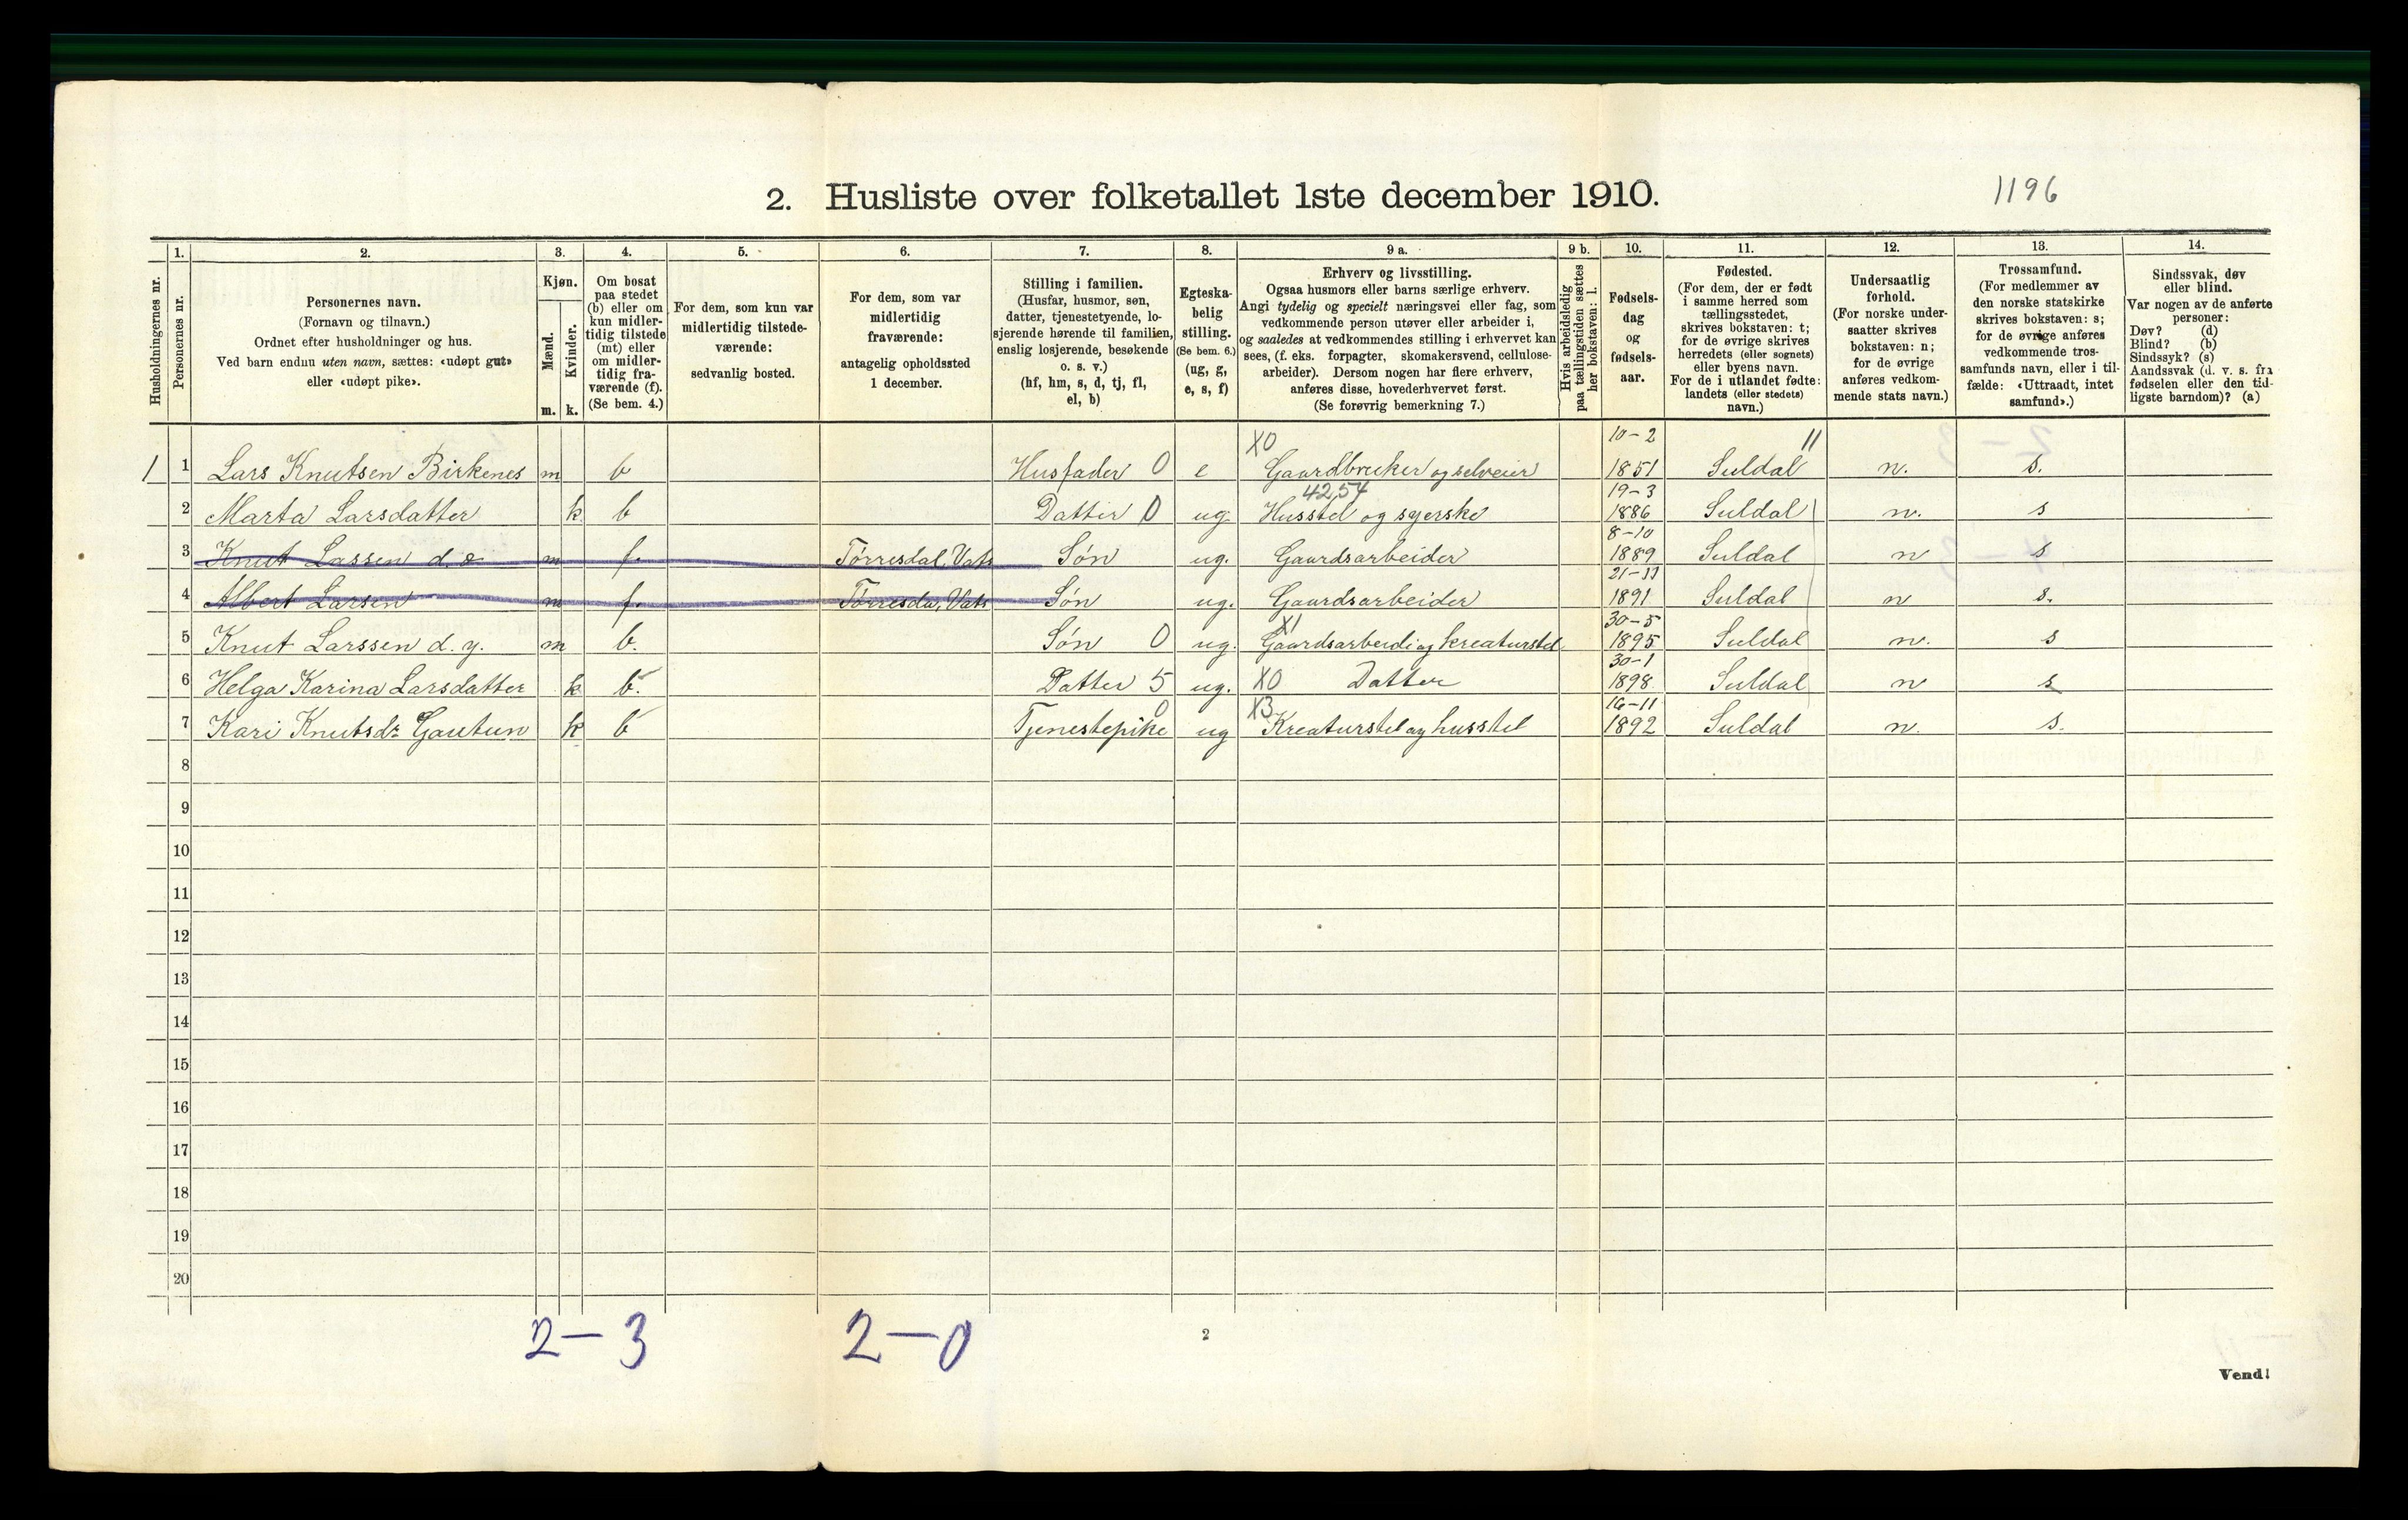 2. Husliste over folketallet 1ste december 1910.
1196
Husholdningernes nr.
1.
Personernes nr.
2.
Personernes navn.
(Fornavn og tilnavn.)
Ordnet efter husholdninger og hus.
Ved barn endnu uten navn, sættes: «udøpt gut»
eller «udøpt pike».
3.
Kjøn.
Mænd.
Kvinder.
m. k.
4.
Om bosat
paa stedet
(b) eller om
kun midler-
tidig tilstede
(mt) eller
om midler-
tidig fra-
værende (f).
(Se bem. 4.)
5.
For dem, som kun var
midlertidig tilstede-
værende:
sedvanlig bosted.
6.
For dem, som var
midlertidig
fraværende:
antagelig opholdssted
1 december.
7.
Stilling i familien.
(Husfar, husmor, søn,
datter, tjenestetyende, lo-
sjerende hørende til familien,
enslig losjerende, besøkende
o. s. v.)
(hf, hm, s, d, tj, fl,
el, b)
8.
Egteska-
belig
stilling.
(Se bem. 6.)
(ug, g,
e, s, f)
9 a.
Erhverv og livsstilling.
Ogsaa husmors eller barns særlige erhverv.
Angi tydelig og specielt næringsvei eller fag, som
vedkommende person utøver eller arbeider i,
og saaledes at vedkommendes stilling i erhvervet kan
sees, (f. eks. forpagter, skomakersvend, cellulose-
arbeider). Dersom nogen har flere erhverv,
anføres disse, hovederhvervet først.
(Se forøvrig bemerkning 7.)
9 b.
Hvis arbeidsledig
paa tællingstiden sættes
her bokstaven: l.
10.
Fødsels-
dag
og
fødsels-
aar.
11.
Fødested.
(For dem, der er født
i samme herred som
tællingsstedet,
skrives bokstaven: t;
for de øvrige skrives
herredets (eller sognets)
eller byens navn.
For de i utlandet fødte:
landets (eller stedets)
navn.)
12.
Undersaatlig
forhold.
(For norske under-
saatter skrives
bokstaven: n;
for de øvrige
anføres vedkom-
mende stats navn.)
13.
Trossamfund.
(For medlemmer av
den norske statskirke
skrives bokstaven: s;
for de øvrige anføres
vedkommende tros-
samfunds navn, eller i til-
fælde: «Uttraadt, intet
samfund».)
14.
Sindssvak, døv
eller blind.
Var nogen av de anførte
personer:
Døv? (d)
Blind? (b)
Sindssyk? (s)
Aandssvak (d. v. s. fra
fødselen eller den tid-
ligste barndom)? (a)
X0 10-2 11
1 1 Lars Knutsen Birkenes m b Husfader 0 e Gaardbruker og selveier 1851 Suldal n. s.
42,54 19-3
2 Marta Larsdatter k b Datter 0 ug. Husstel og syerske 1886 Suldal n. s
8-10
3 Knut Lassen d. e m f. Tørresdal, Vats Søn ug. Gaardsarbeider 1889 Suldal n s
21-11
4 Albert Larsen m f. Tørresda, Vats Søn ug. Gaardsarbeider 1891 Suldal n s.
X1 30-5
5 Knut Larssen d. y. m b. Søn 0 ug. Gaardsarbeidi og kreaturstel 1895 Suldal n. s
30-1
6 Helga Karina Larsdatter k b. Datter 5 ug. X0 Datter 1898 Suldal n s
0 X3 16-11
7 Kari Knutsdr Gautun k b Tjenestepike ug Kreaturstel og husstel 1892 Suldal n. s.
8
9
10
11
12
13
14
15
16
17
18
19
20
2-3 2-0
2
Vend!